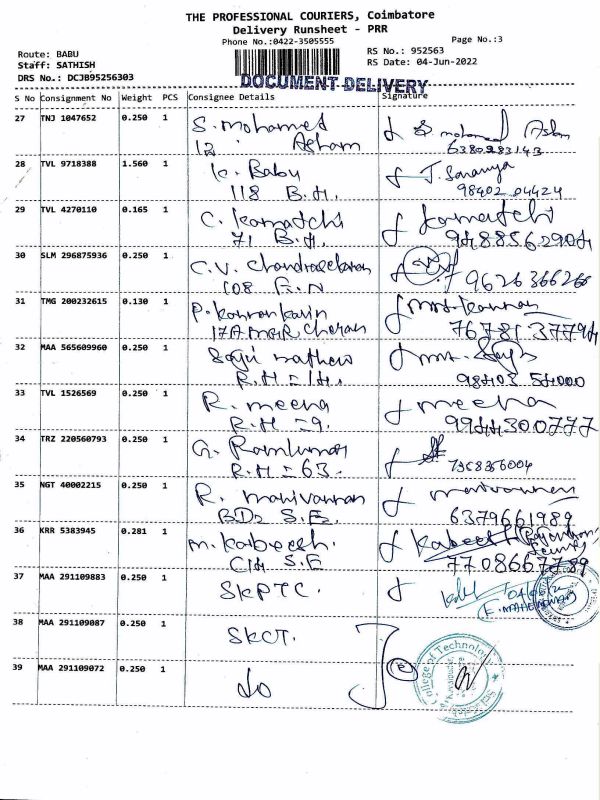 THE PROFESSIONAL COURIERS, Coimbatore
Delivery Runsheet - PRR
Phone No.:0422-3505555
Page No.:3
Route: BABU
Staff: SATHISH
DRS No.: DCJB95256303
RS No.: 952563
RS Date: 04-Jun-2022
DOCUMENT DELIVERY
S No Consignment No Weight PCS Consignee Details Signature
27 TNJ 1047652 0.250 1 S. Mohamed
12 Asham
6380283143
28 TVL 9718388 1.560 1 K. Baby J. Saranya
118 B.H. 98402 04424
29 TVL 4270110 0.165 1 C. Kamatchi Kamatchi
71 B.H. 9488562904
30 SLM 296875936 0.250 1 C.V. Chandrasekaran
108 9626366266
31 TMG 200232615 0.130 1 P.
17A MGR 7678137794
32 MAA 565609960 0.250 1 Saju Mathew
R.H - 14. 98403 54000
33 TVL 1526569 0.250 1 R. Meena Meena
R.H - 9. 9944300777
34 TRZ 220560793 0.250 1 G. Ramkumar
R.H - 63. 7368356004
35 NGT 40002215 0.250 1 R. Manivannan
BD2 S.E. 6379661989
36 KRR 5383945 0.281 1 M. Kabeesh. Kabeesh
C14 S.E 7708667789
37 MAA 291109883 0.250 1 SKPTC.
38 MAA 291109087 0.250 1 SKCT.
39 MAA 291109072 0.250 1 do
College of Technology